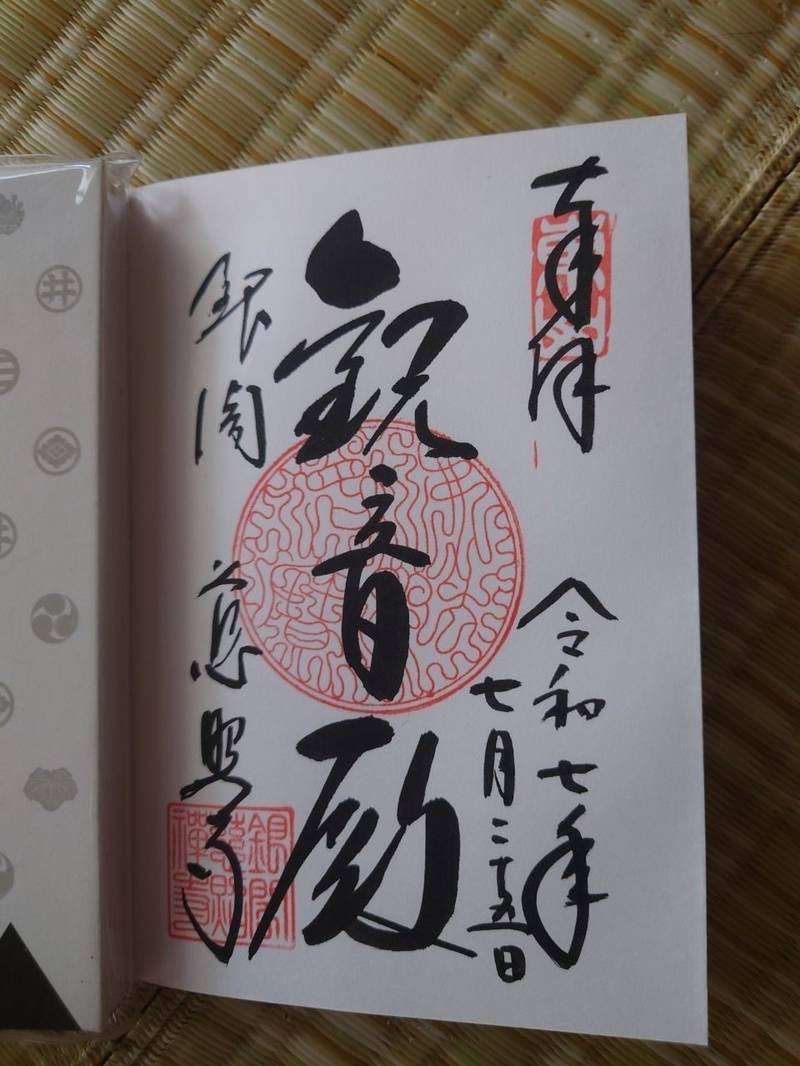 奉拝
令和七年
七月二十五日
観音殿
銀閣 慈照寺
銀閣
慈照
禅寺